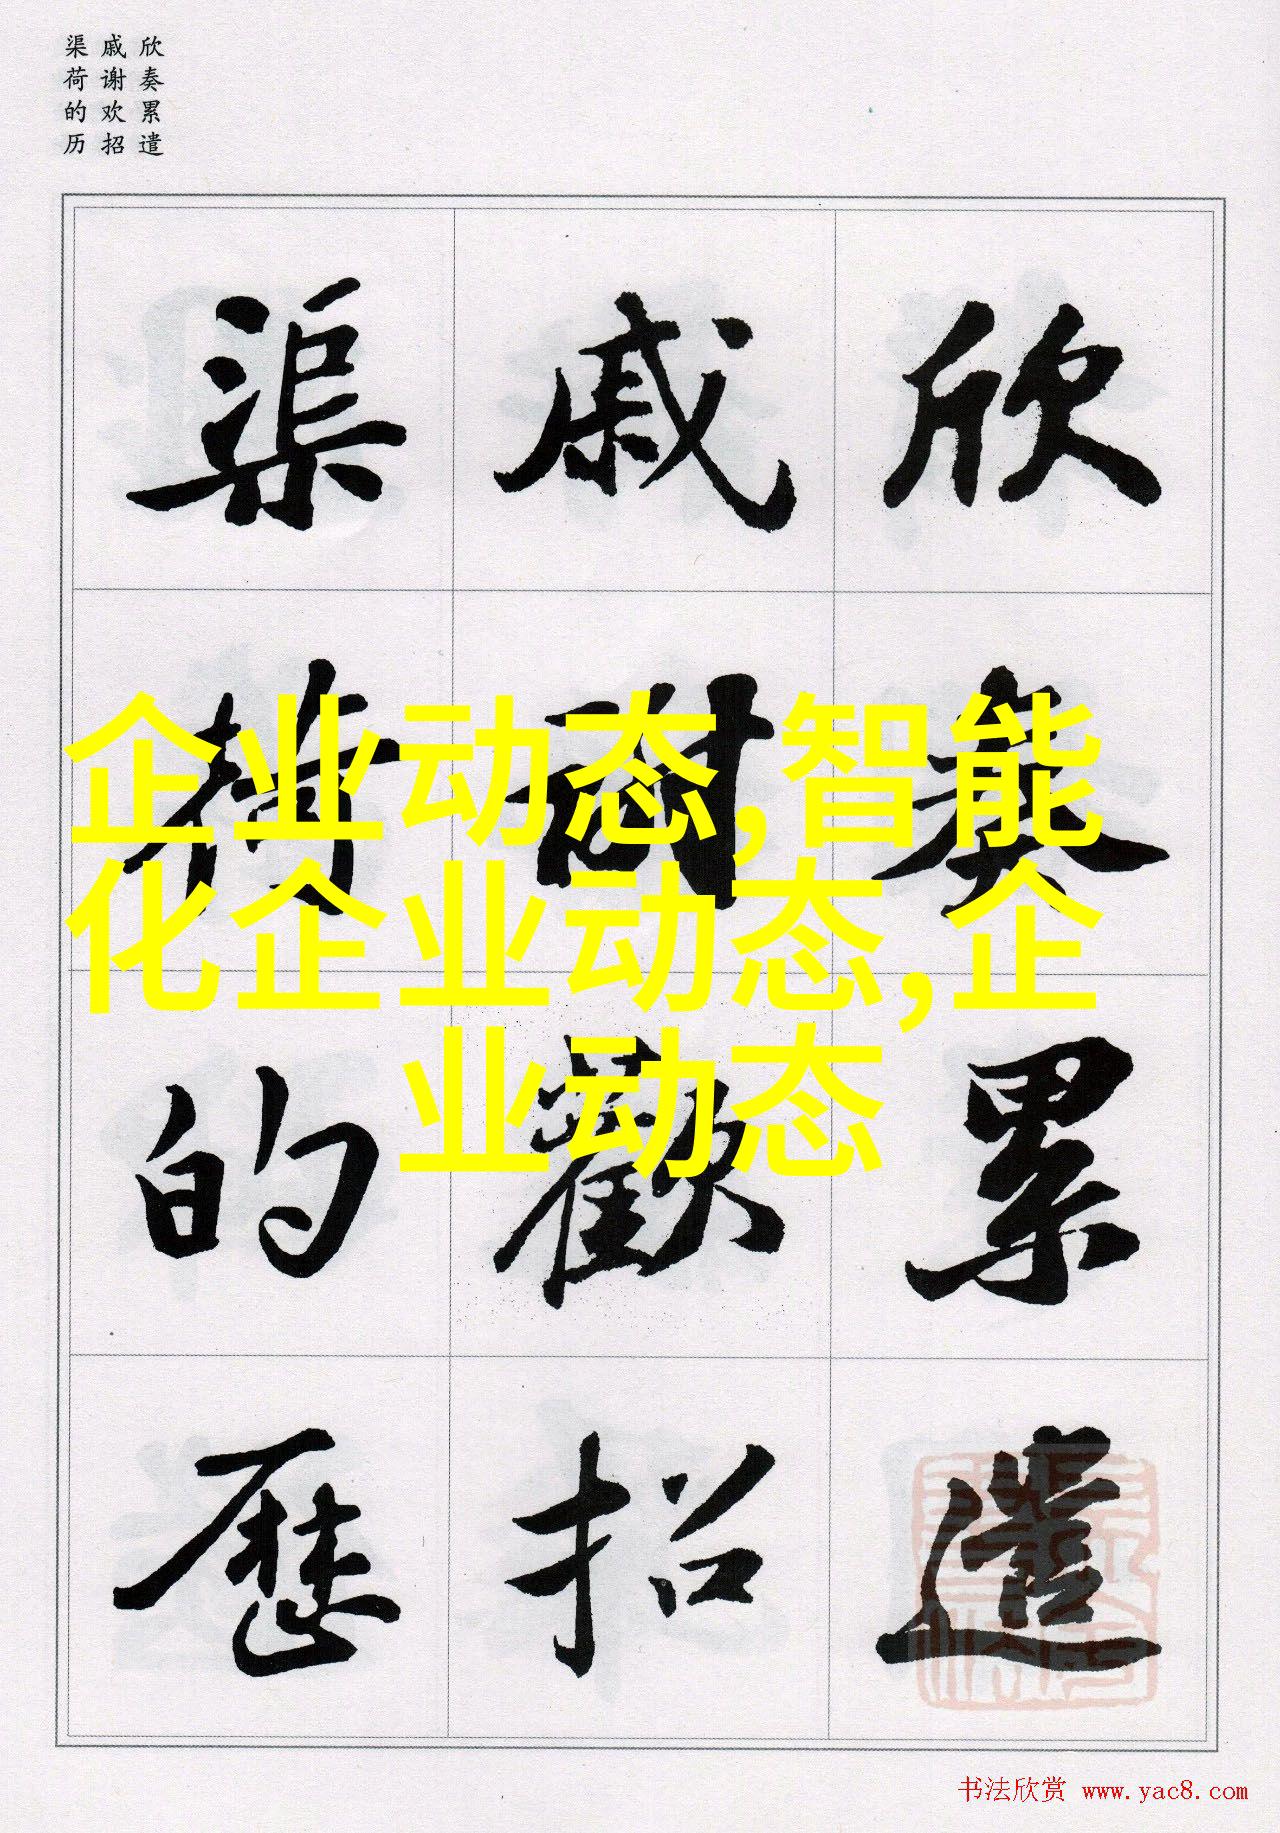 欣奏累遣
戚谢欢招
渠荷的历
欣奏累遣
戚謝歡招
渠荷的歷
企业动态,智能
化企业动态,企
业动态
书法欣赏 www.yac8.com